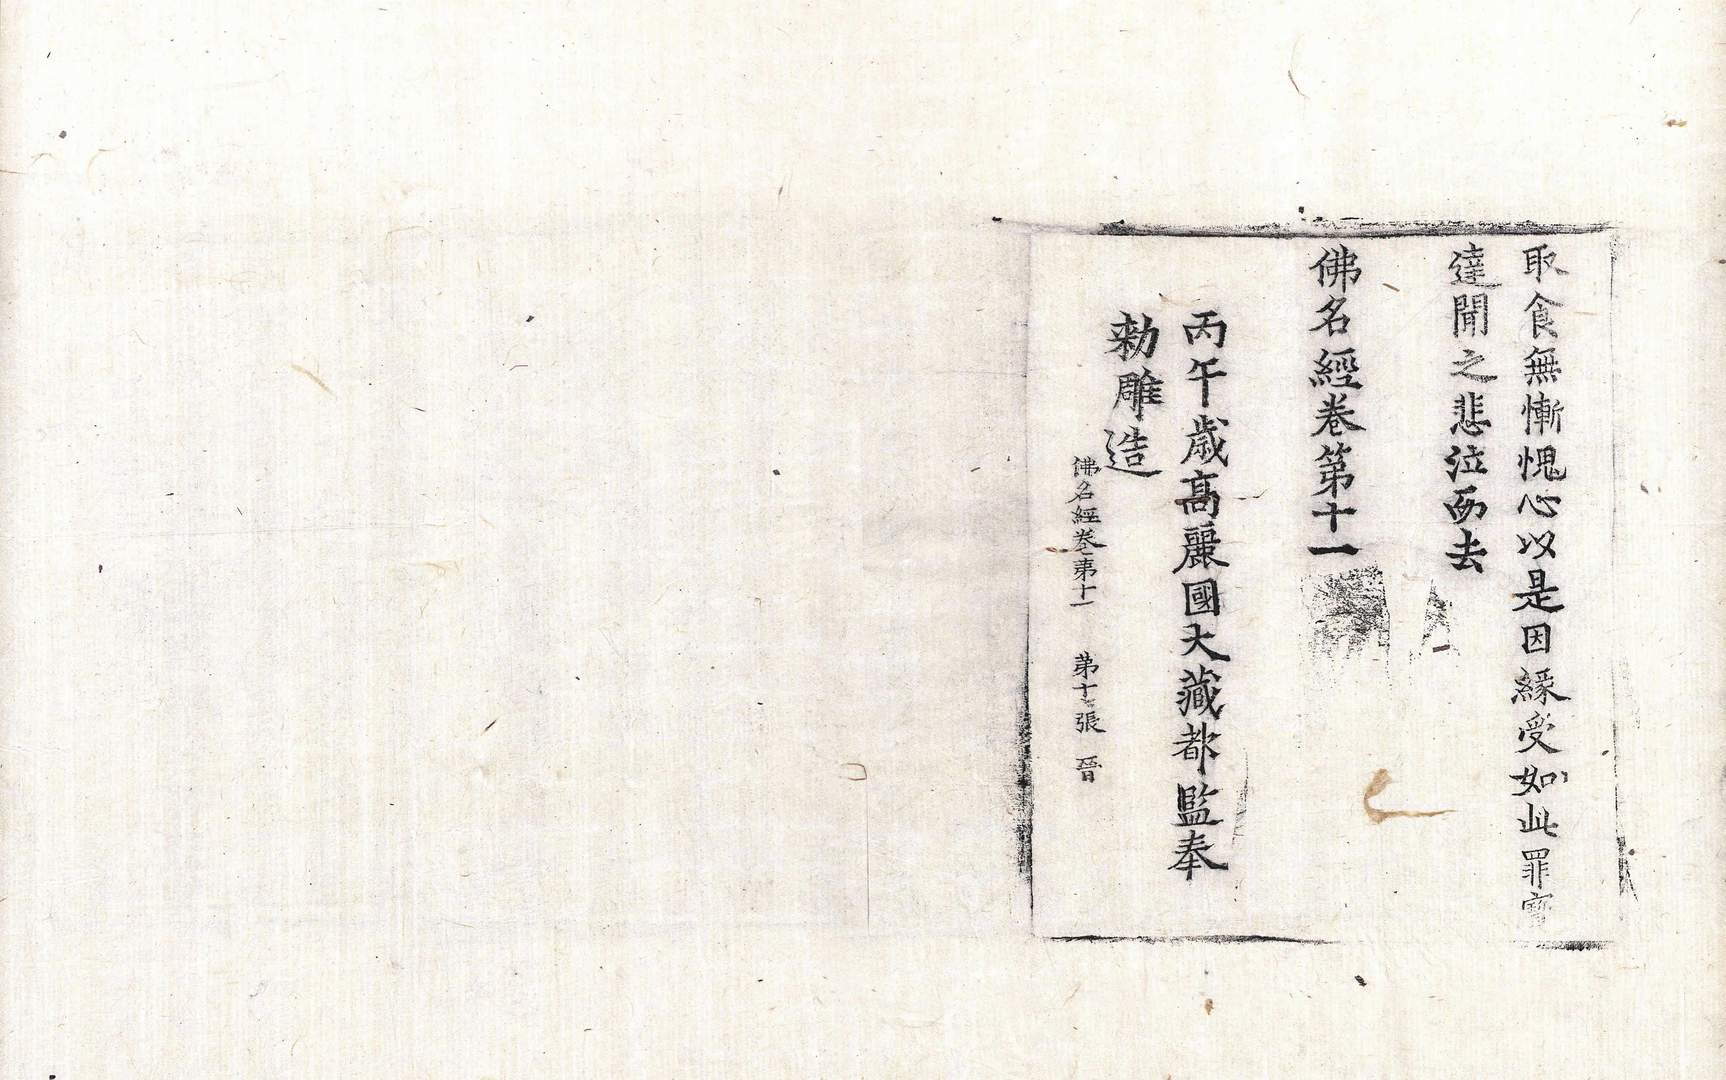 取食無慚愧心以是因緣受如此罪寶
達聞之悲泣而去
佛名經卷第十一
丙午歲高麗國大藏都監奉
勅雕造
佛名經卷第十一 第十 張 晉